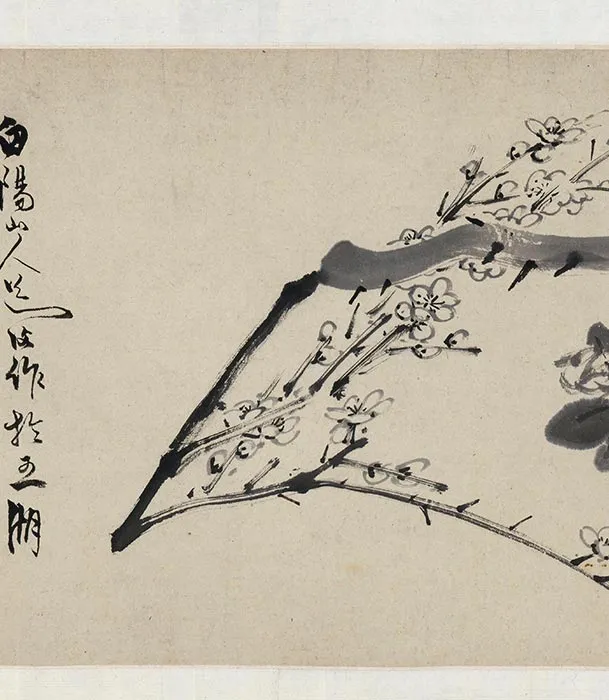 白陽山人道復作於五湖